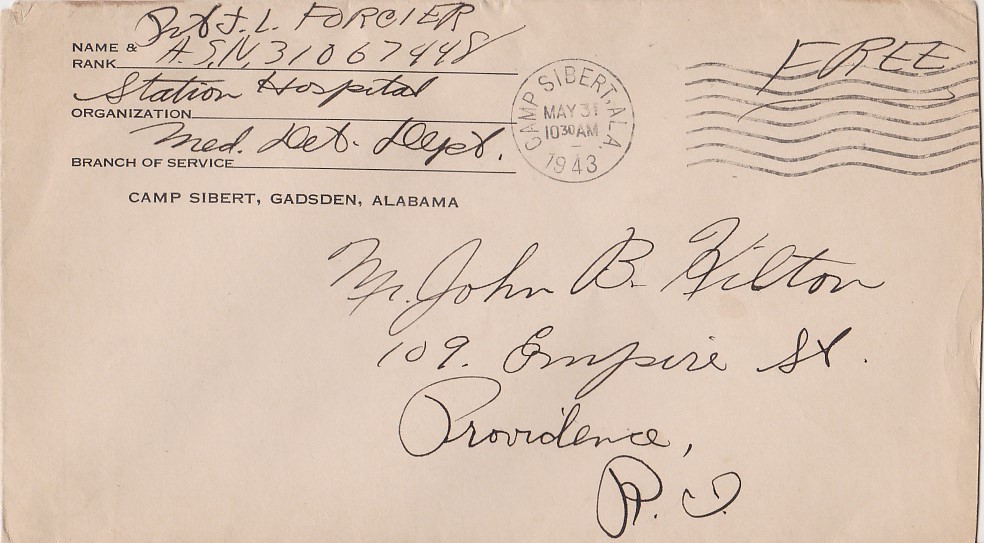 Pvt J. L. FORCIER
NAME & RANK A.S.N. 31067448
Station Hospital
ORGANIZATION
Med. Det. Dept.
BRANCH OF SERVICE
CAMP SIBERT, GADSDEN, ALABAMA
CAMP SIBERT, ALA.
MAY 31
10 30 AM
1943
FREE
Mr. John B. Hilton
109. Empire St.
Providence,
R. I.